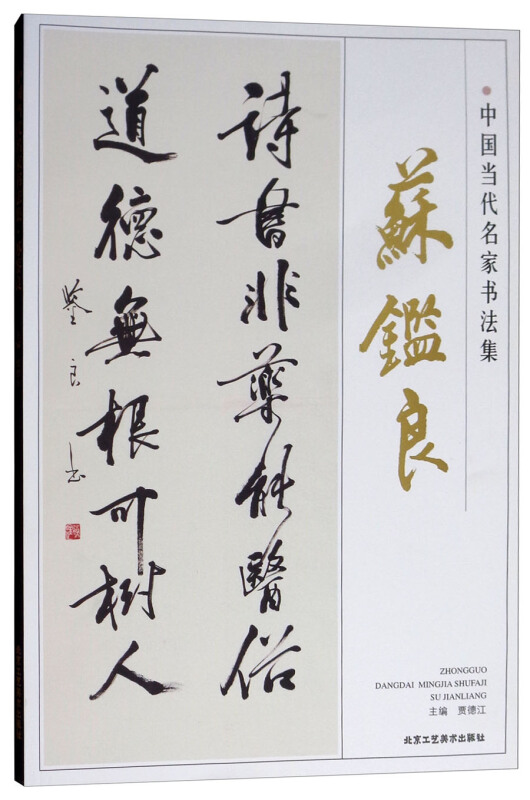 中国当代名家书法集
蘇鑑良
詩書非藥能醫俗
道德無根可樹人
鉴良
ZHONGGUO
DANGDAI MINGJIA SHUFAJI
SU JIANLIANG
主编 贾德江
北京工艺美术出版社